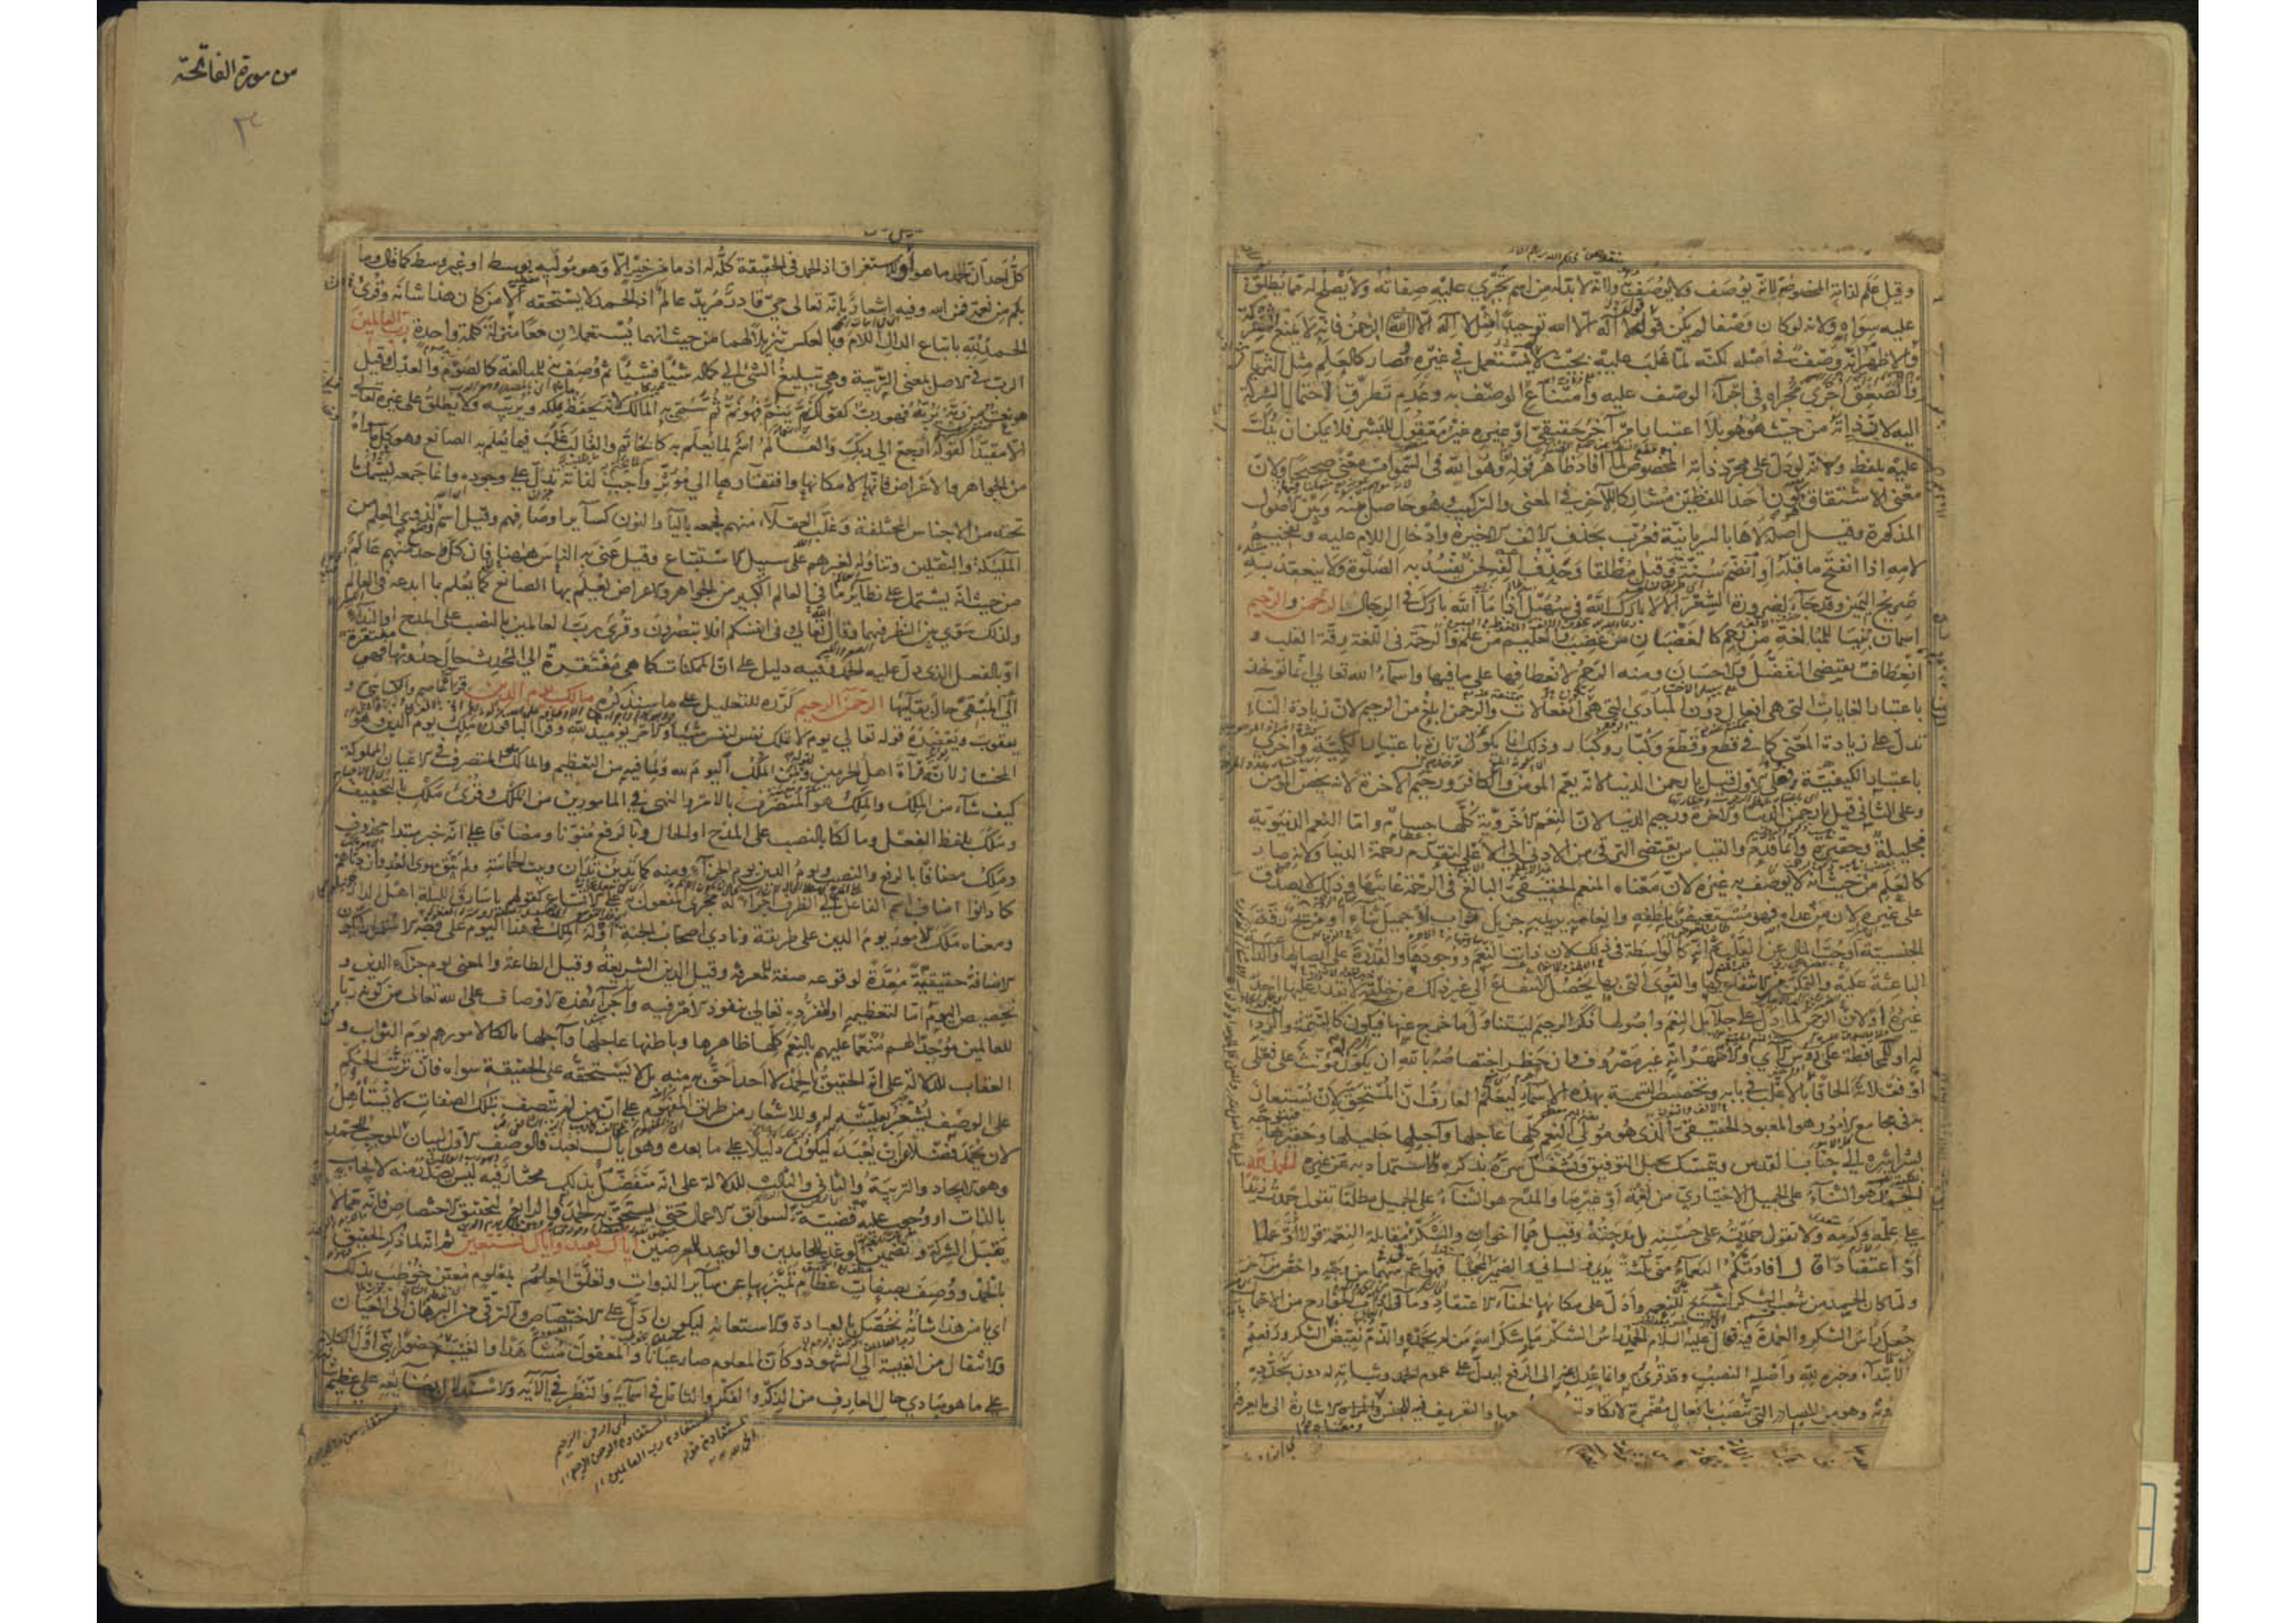 وقيل علم لذاته المخصوصة لانه يوصف ولا يوصف به ولانه لا بد له من اسم تجري عليه صفاته ولا يصلح له مما يطلق
عليه سواه ولانه لو كان وصفا لم يكن قول لا اله الا الله توحيدا مثل لا اله الا الرحمن فانه لا يمنع الشركة
والاظهر انه وصف في اصله لكنه لما غلب عليه بحيث لا يستعمل في غيره وصار كالعلم مثل الثريا
والصعق اجري مجراه في اجراء الوصف عليه وامتناع الوصف به وعدم تطرق احتمال الشركة
اليه لان ذاته من حيث هو هو بلا اعتبار امر آخر حقيقي او غيره غير معقول للبشر فلا يمكن ان يدل
عليه بلفظ ولانه لو دل على مجرد ذاته المخصوص لما افاد ظاهر قوله وهو الله في السموات معنى صحيحا ولان
معنى الاشتقاق كون احد اللفظين مشاركا للآخر في المعنى والتركيب وهو حاصل بينه وبين الاصول
المذكورة وقيل اصله لاها بالسريانية فعرب بحذف الالف الاخيرة وادخال اللام عليه وتفخيم
لامه اذا انفتح ما قبله او انضم سنة وقيل مطلقا وحذف الفه لحن يفسد به الصلوة ولا ينعقد به
صريح اليمين وقد جاء لضرورة الشعر الا لا بارك الله في سهيل اذا ما الله بارك في الرجال الرحمن والرحيم
اسمان بنيا للمبالغة من رحم كالغضبان من غضب والعليم من علم والرحمة في اللغة رقة القلب و
انعطاف يقتضي التفضل والاحسان ومنه الرحم لانعطافها على ما فيها واسماء الله تعالى انما توخذ
باعتبار الغايات التي هي افعال دون المبادي التي هي انفعالات والرحمن ابلغ من الرحيم لان زيادة البناء
تدل على زيادة المعنى كما في قطع وقطع وكبار وكبار وذلك انما يكون تارة باعتبار الكمية واخرى
باعتبار الكيفية فعلى الاول قيل يا رحمن الدنيا لانه يعم المومن والكافر ورحيم الآخرة لانه يخص المؤمن
وعلى الثاني قيل يا رحمن الدنيا والاخرة ورحيم الدنيا لان النعم الاخروية كلها جسام واما النعم الدنيوية
فجليلة وحقيرة وانما قدم والقياس يقتضي الترقي من الادنى الى الاعلى لتقدم رحمة الدنيا ولانه صار
كالعلم من حيث انه لا يوصف به غيره لان معناه المنعم الحقيقي البالغ في الرحمة غايتها وذلك لا يصدق
على غيره لان من عداه فهو مستعيض بلطفه وانعامه يريد به جزيل ثواب او جميل ثناء او مزيح رقة
الجنسية او حب المال عن القلب ثم انه كالواسطة في ذلك لان ذات النعم ووجودها والقدرة على ايصالها والداعية
الباعثة عليه والتمكن من الانتفاع بها والقوى التي بها يحصل الانتفاع الى غير ذلك من خلقه لا يقدر عليها احد
غيره او لان الرحمن لما دل على جلائل النعم واصولها ذكر الرحيم ليتناول ما خرج عنها فيكون كالتتمة والرديف
له او للمحافظة على رؤس الآي والاظهر انه غير مصروف وان حظر اختصاصه بالله ان يكون له مؤنث على فعلى
او فعلانة الحاقا بالاغلب في بابه وتخصيص التسمية بهذه الاسماء ليعلم العارف ان المستحق لان يستعان
به في مجامع الامور هو المعبود الحقيقي الذي هو مولى النعم كلها عاجلها وآجلها جليلها وحقيرها فيتوجه
بشراشره الى جناب القدس ويتمسك بحبل التوفيق ويشغل سره بذكره والاستمداد به عن غيره الحمد لله
الحمد هو الثناء على الجميل الاختياري من نعمة او غيرها والمدح هو الثناء على الجميل مطلقا تقول حمدت زيدا
على علمه وكرمه ولا تقول حمدته على حسنه بل مدحته وقيل هما اخوان والشكر مقابلة النعمة قولا وعملا
او اعتقادا قال افادتكم النعماء مني ثلثة يدي ولساني والضمير المحجبا فهو اعم منهما من وجه واخص من آخر
ولما كان الحمد من شعب الشكر اشيع للنعمة وادل على مكانها لخفاء الاعتقاد وما في آداب الجوارح من الاحتمال
جعل راس الشكر والعمدة فيه فقال عليه السلام الحمد راس الشكر ما شكر الله من لم يحمده والذم نقيض الشكر ورفعه
بالابتداء وخبره لله واصله النصب وقد قرئ به وانما عدل عنه الى الرفع ليدل على عموم الحمد وثباته له دون تجدده
وهو من المصادر التي تنصب بافعال مضمرة لا تكاد والتعريف فيه للجنس ومعناه الاشارة الى ما يعرفه
من سورة الفاتحة
٣
كل احد ان الحمد ما هو او للاستغراق اذ الحمد في الحقيقة كله له اذ ما من خير الا وهو موليه بوسط او غير وسط كما قال وما
بكم من نعمة فمن الله وفيه اشعار بانه تعالى حي قادر مريد عالم اذ الحمد لا يستحقه الا من كان هذا شانه وقرئ
الحمد لله باتباع الدال اللام وبالعكس تنزيلا لهما من حيث انهما يستعملان معا منزلة كلمة واحدة رب العالمين
الرب في الاصل بمعنى التربية وهي تبليغ الشئ الى كماله شيئا فشيئا ثم وصف به للمبالغة كالصوم والعدل وقيل
هو نعت من ربه يربه فهو رب كقولك نم ينم فهو نم ثم سمي به المالك لانه يحفظ ما يملكه ويربيه ولا يطلق على غيره تعالى
الا مقيدا كقوله ارجع الى ربك والعالم اسم لما يعلم به كالخاتم والقالب غلب فيما يعلم به الصانع وهو كل ما سواه
من الجواهر والاعراض فانها لامكانها وافتقارها الى مؤثر واجب لذاته تدل على وجوده وانما جمعه ليشمل ما
تحته من الاجناس المختلفة وغلب العقلاء منهم فجمعه بالياء والنون كسائر اوصافهم وقيل اسم لذوي العلم من
الملائكة والثقلين وتناوله لغيرهم على سبيل الاستتباع وقيل عني به الناس ههنا فان كل واحد منهم عالم
من حيث انه يشتمل على نظائر ما في العالم الكبير من الجواهر والاعراض يعلم بها الصانع كما يعلم بما ابدعه في العالم
ولذلك سوى بين النظر فيهما وقال تعالى وفي انفسكم افلا تبصرون وقرئ رب العالمين بالنصب على المدح او النداء
او بالفعل الذي دل عليه الحمد وفيه دليل على ان الممكنات كما هي مفتقرة الى المحدث حال حدوثها فهي مفتقرة
الى المبقي حال بقائها الرحمن الرحيم كرره للتعليل على ما سنذكره مالك يوم الدين قراءة عاصم والكسائي و
يعقوب ويعضده قوله تعالى يوم لا تملك نفس لنفس شيئا والامر يومئذ لله وقرأ الباقون ملك يوم الدين وهو
المختار لانه قراءة اهل الحرمين ولمن الملك اليوم لله ولما فيه من التعظيم والمالك هو المتصرف في الاعيان المملوكة
كيف شاء من الملك والملك هو المتصرف بالامر والنهي في المامورين من الملك وقرئ ملك بالتخفيف
وملك بلفظ الفعل ومالكا بالنصب على المدح او الحال وبالرفع منونا ومضافا على انه خبر مبتدا محذوف
وملك مضافا بالرفع والنصب ويوم الدين يوم الجزاء ومنه كما تدين تدان وبيت الحماسة ولم يبق سوى العدوان دناهم
كما دانوا اضاف اسم الفاعل الى الظرف اجراء له مجرى المفعول به على الاتساع كقولهم يا سارق الليلة اهل الدار
ومعناه ملك الامور يوم الدين على طريقة ونادى اصحاب الجنة او له الملك في هذا اليوم على وجه الاستمرار لتكون
الاضافة حقيقية معدة لوقوعه صفة للمعرفة وقيل الدين الشريعة وقيل الطاعة والمعنى يوم جزاء الدين و
تخصيص اليوم اما لتعظيمه او لتفرده تعالى بنفوذ الامر فيه واجراء هذه الاوصاف على الله تعالى من كونه ربا
للعالمين موجدا لهم منعما عليهم بالنعم كلها ظاهرها وباطنها عاجلها وآجلها مالكا لامورهم يوم الثواب و
العقاب للدلالة على انه الحقيق بالحمد لا احد احق به منه بل لا يستحقه على الحقيقة سواه فان ترتب الحكم
على الوصف يشعر بعليته له وللاشعار من طريق المفهوم على ان من لم يتصف بتلك الصفات لا يستاهل
لان يحمد فضلا عن ان يعبد ليكون دليلا على ما بعده وهو اياك نعبد فالوصف الاول لبيان الموجب للحمد
وهو الايجاد والتربية والثاني والثالث للدلالة على انه متفضل بذلك مختار فيه ليس يصدر منه لايجاب
بالذات او وجوب عليه قضية لسوابق الاعمال حتى يستحق به الحمد والرابع لتحقيق الاختصاص فانه مما لا
يقبل الشركة وتضمين الوعد للحامدين والوعيد للمعرضين اياك نعبد واياك نستعين ثم انه لما ذكر الحقيق
بالحمد ووصف بصفات عظام تميز بها عن سائر الذوات وتعلق العلم بمعلوم معين خوطب بذلك
اي يا من هذا شانه نخصك بالعبادة والاستعانة ليكون ادل على الاختصاص والترقي من البرهان الى العيان
والانتقال من الغيبة الى الشهود وكان المعلوم صار عيانا والمعقول مشاهدا والغيبة حضورا بنى اول الكلام
على ما هو مبادي حال العارف من الذكر والفكر والتامل في اسمائه والنظر في آلائه والاستدلال بصنائعه على عظيم